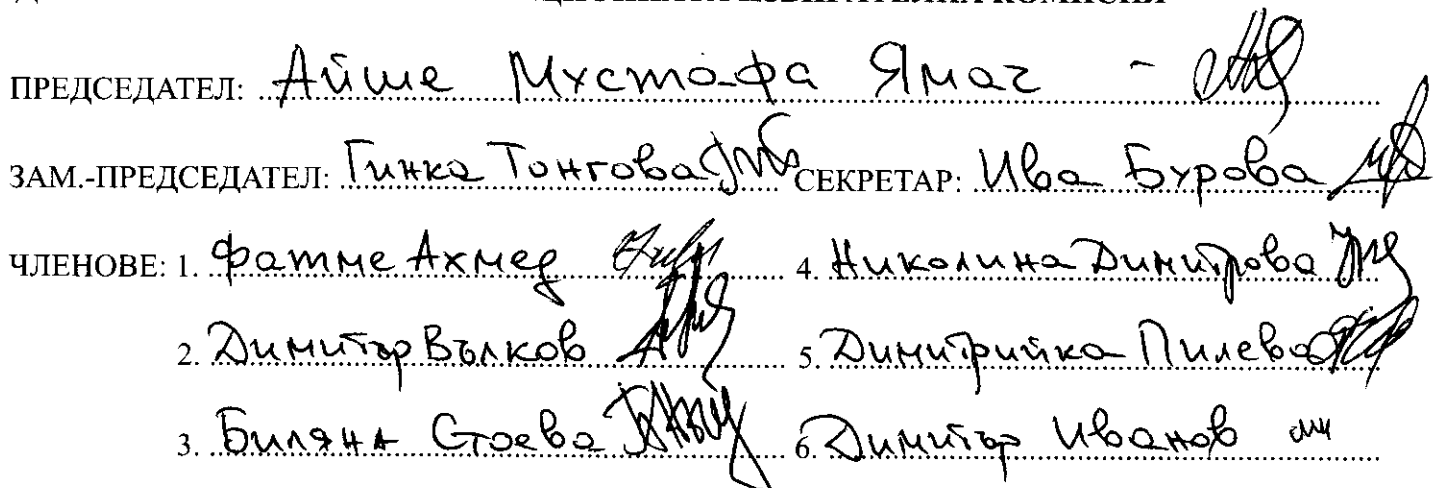 ИЗБИРАТЕЛНА КОМИСИЯ
ПРЕДСЕДАТЕЛ: Айше Мустафа Ямач -
ЗАМ.-ПРЕДСЕДАТЕЛ: Гинка Тонгова СЕКРЕТАР: Ива Бурова
ЧЛЕНОВЕ: 1. Фатме Ахмед 4. Николина Димитрова
2. Димитър Вълков 5. Димитрийка Пилева
3. Биляна Стоева 6. Димитър Иванов